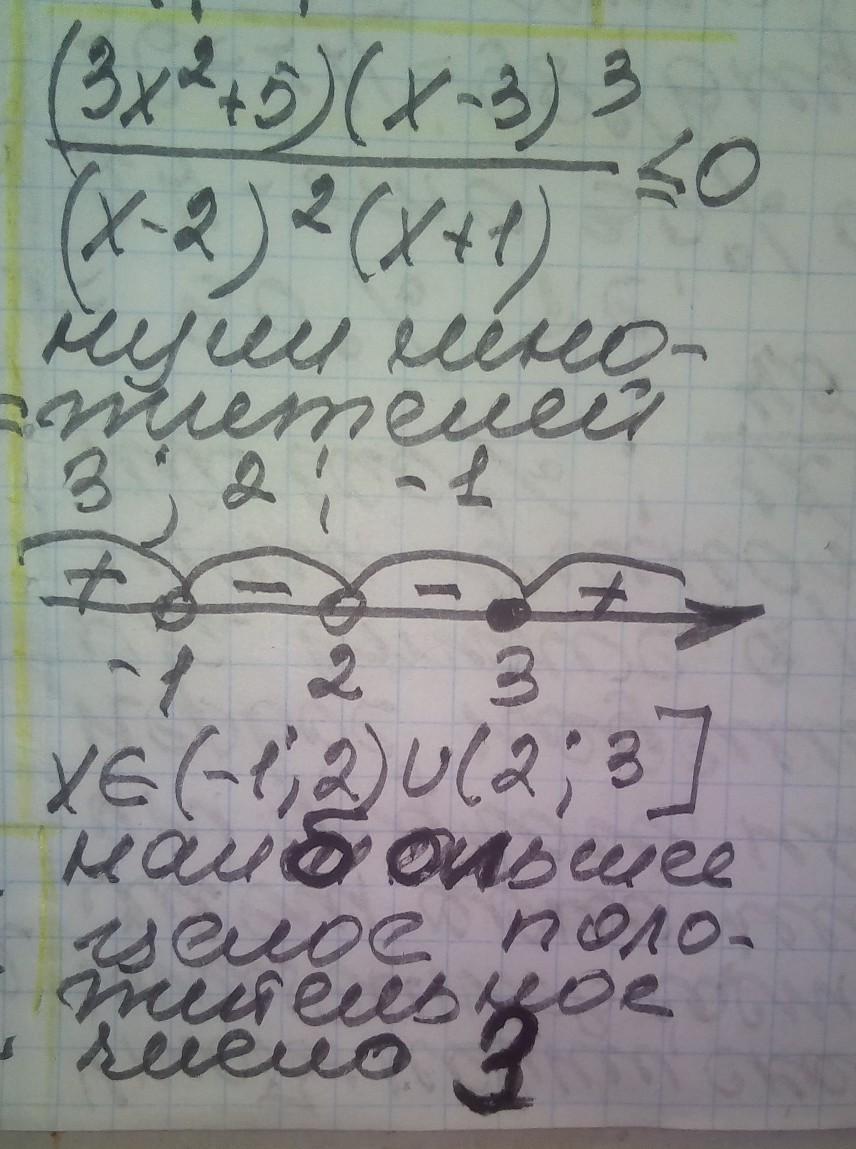 (3x²+5)(x-3)³
(x-2)²(x+1)
≤0
нули мно-
=жителей
3; 2; -1
+ - - +
-1 2 3
x∈(-1;2)∪(2;3]
наибольшее
целое поло-
жительное
число 3